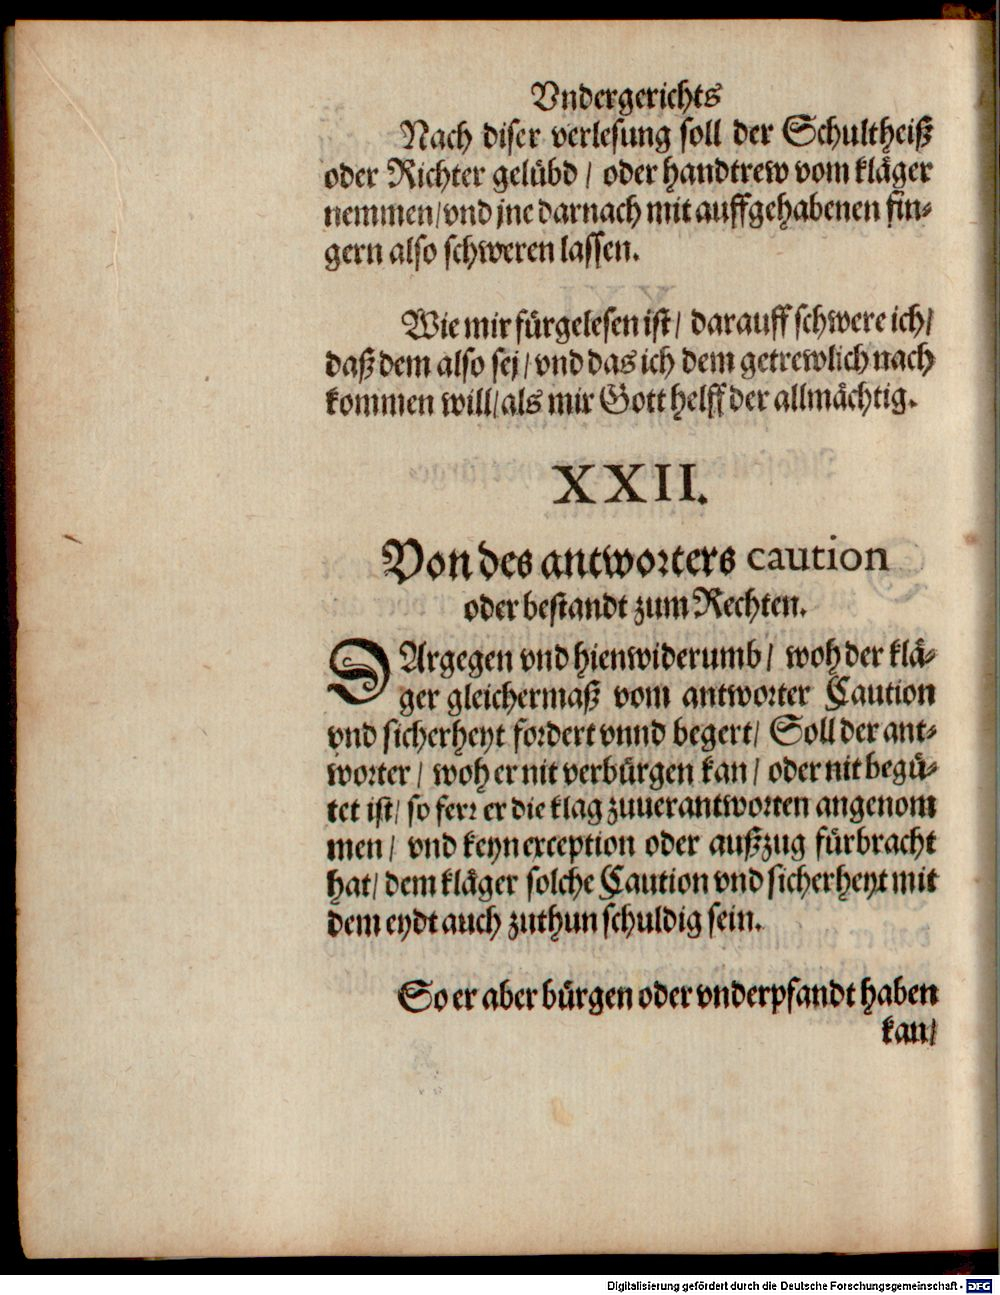 Vndergerichts
Nach diser verlesung soll der Schultheiß
oder Richter gelübd / oder handtrew vom kläger
nemmen / vnd jne darnach mit auffgehabenen fin⸗
gern also schweren lassen.
Wie mir fürgelesen ist / darauff schwere ich /
daß dem also sej / vnd das ich dem getrewlich nach
kommen will / als mir Gott helff der allmächtig.
XXII.
Von des antworters caution
oder bestandt zum Rechten.
DArgegen vnd hienwiderumb / woh der klä⸗
ger gleichermaß vom antworter Caution
vnd sicherheyt fordert vnnd begert / Soll der ant⸗
worter / woh er nit verbürgen kan / oder nit begü⸗
tet ist / so ferr er die klag zuuerantworten angenom
men / vnd keyn exception oder außzug fürbracht
hat / dem kläger solche Caution vnd sicherheyt mit
dem eydt auch zuthun schuldig sein.
So er aber bürgen oder vnderpfandt haben
kan /
Digitalisierung gefördert durch die Deutsche Forschungsgemeinschaft - DFG